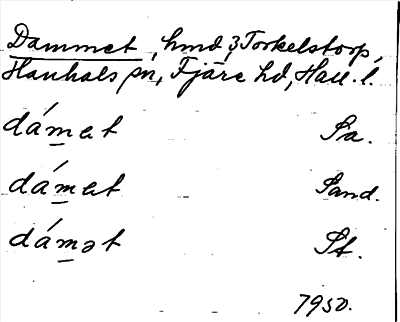 Dammet, hmd, 3 Torkelstorp,
Hanhals sn, Fjäre hd, Hall. l.
dám̲at Sa.
dám̲at Sand.
dám̲ət St.
7950.